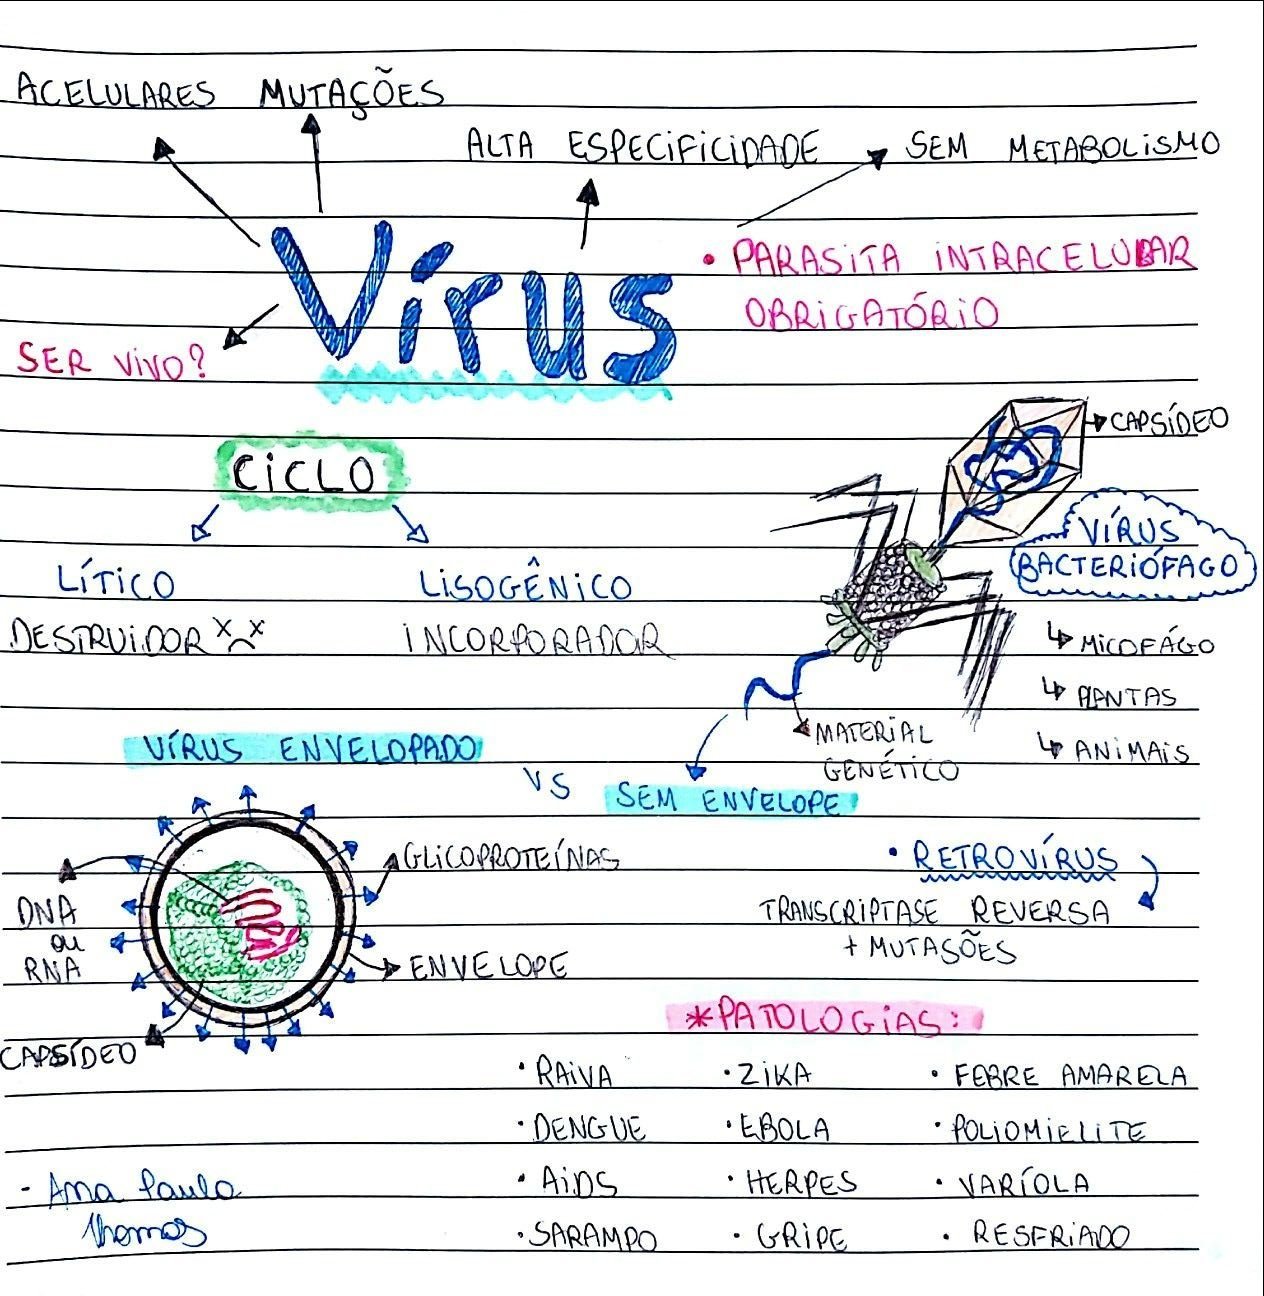 ACELULARES MUTAÇÕES
ALTA ESPECIFICIDADE
SEM METABOLISMO
Vírus
• PARASITA INTRACELULAR
OBRIGATÓRIO
SER VIVO?
CICLO
LÍTICO
LISOGÊNICO
DESTRUIDOR
INCORPORADOR
CAPSÍDEO
VÍRUS
BACTERIÓFAGO
MICOFÁGO
PLANTAS
ANIMAIS
MATERIAL
GENÉTICO
VÍRUS ENVELOPADO
VS
SEM ENVELOPE
GLICOPROTEÍNAS
DNA
ou
RNA
ENVELOPE
CAPSÍDEO
• RETROVÍRUS
TRANSCRIPTASE REVERSA
+ MUTASÕES
*PATOLOGIAS:
• RAIVA • ZIKA • FEBRE AMARELA
• DENGUE • EBOLA • POLIOMIELITE
• AIDS • HERPES • VARÍOLA
• SARAMPO • GRIPE • RESFRIADO
- Ana Paula
Thomas